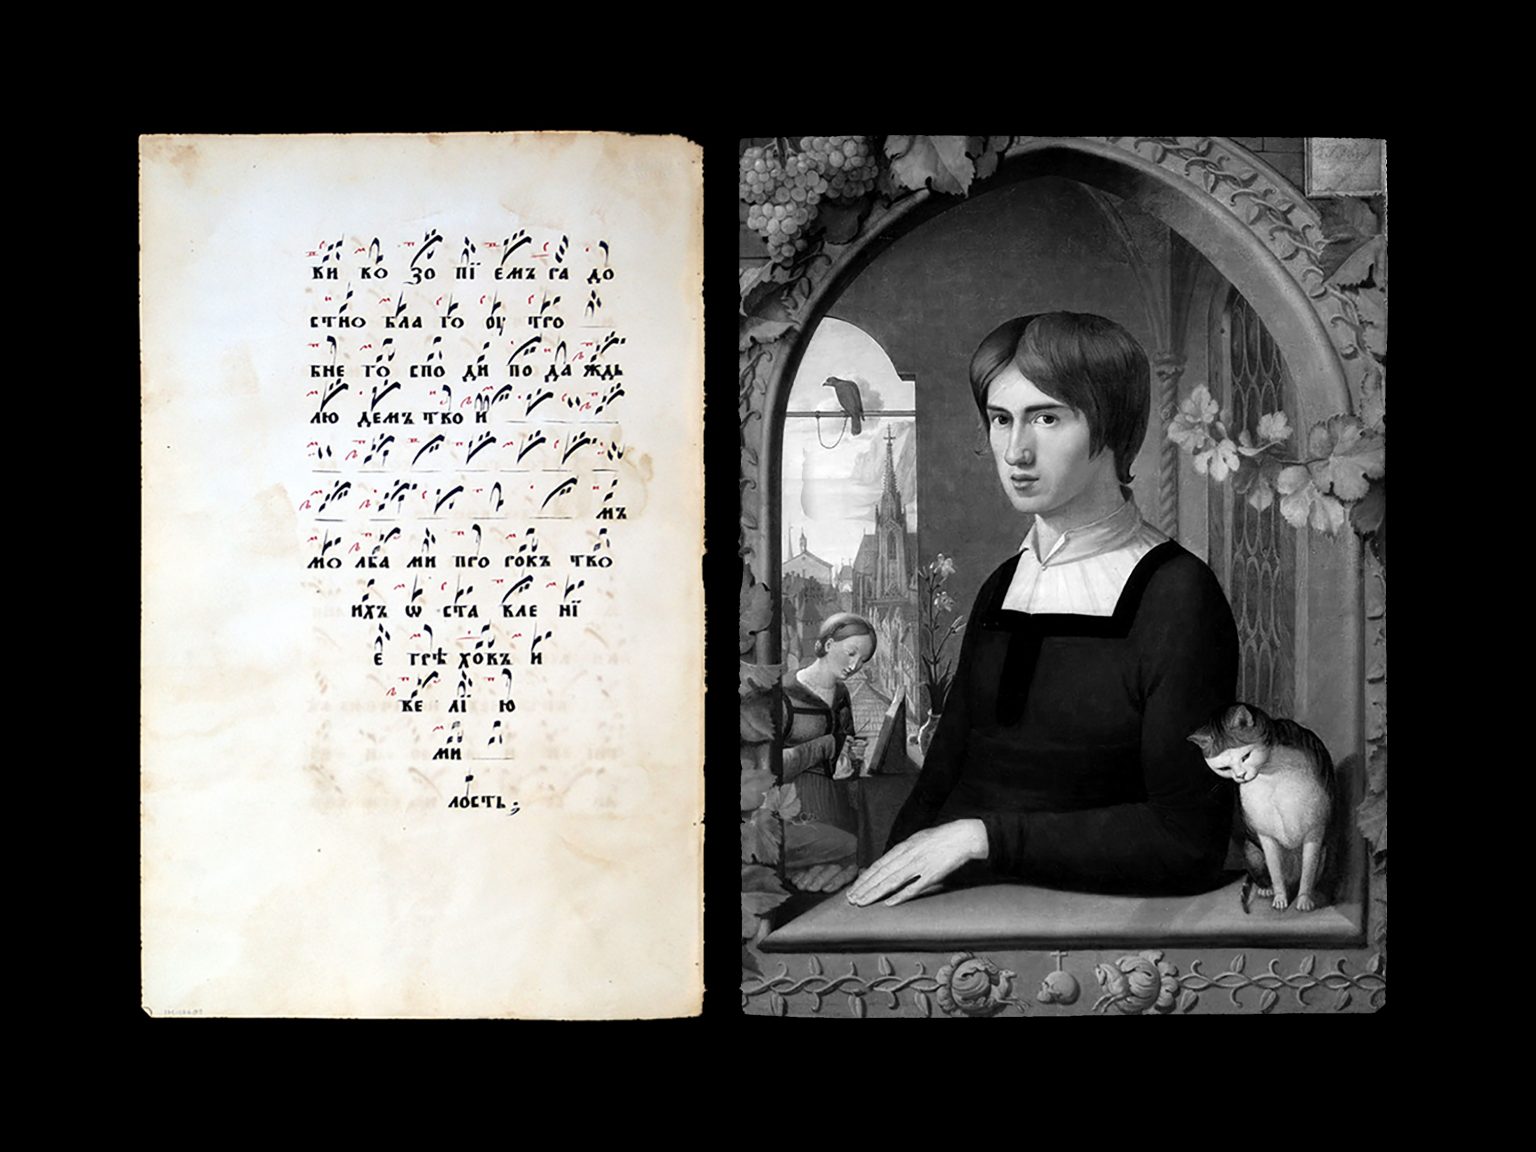 ви ко зо пї емъ га до
стно бла го оу тро
бне го спо ди по да ждь
лю демъ тво и
мъ
мо лба ми про рокъ тво
ихъ ѡ ста вле нї
е грѣ ховъ и
ве лї ю
ми
лость ;